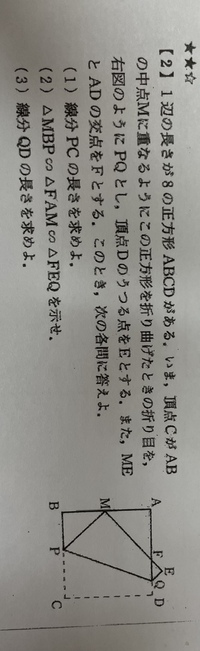 ★★☆
【2】 1辺の長さが8の正方形ABCDがある.いま,頂点CがAB
の中点Mに重なるようにこの正方形を折り曲げたときの折り目を,
右図のようにPQとし,頂点Dのうつる点をEとする.また,ME
とADの交点をFとする.このとき,次の各問に答えよ.
(1) 線分PCの長さを求めよ.
(2) △MBP∽△FAM∽△FEQを示せ.
(3) 線分QDの長さを求めよ.
A
F
E
Q
D
M
B
P
C